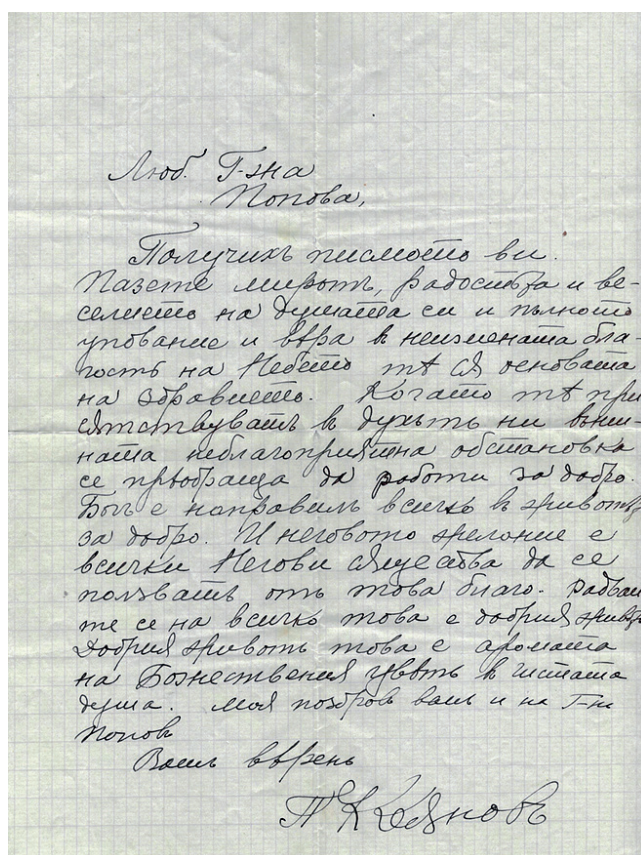 Люб. Г-жа
Попова,
Получихъ писмото ви.
Пазете мирътъ, радостьта и ве-
селието на душата си и пълното
упование и вѣра в неизмената бла-
гость на Небето тѣ сѫ основата
на здравието. Когато тѣ при
сѫтствуватъ в духътъ ни външ-
ната неблагоприятна обстановка
се прѣобраща да работи за добро.
Богъ е направилъ всичко в животътъ
за добро. И неговото желание е
всички Негови сѫщества да се
ползватъ отъ това благо. Радвай
те се на всичко това е добрия животъ
Добрия животъ това е аромата
на Божествения цвѣтъ в чистата
душа. Моя поздравъ вамъ и на Г-нъ
Поповъ
Вашъ вѣренъ
П К Дѫновъ